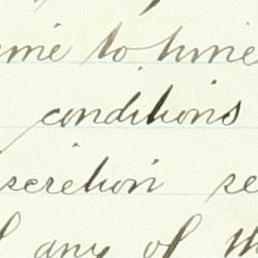 ime to time
conditions
scretion se
any of th